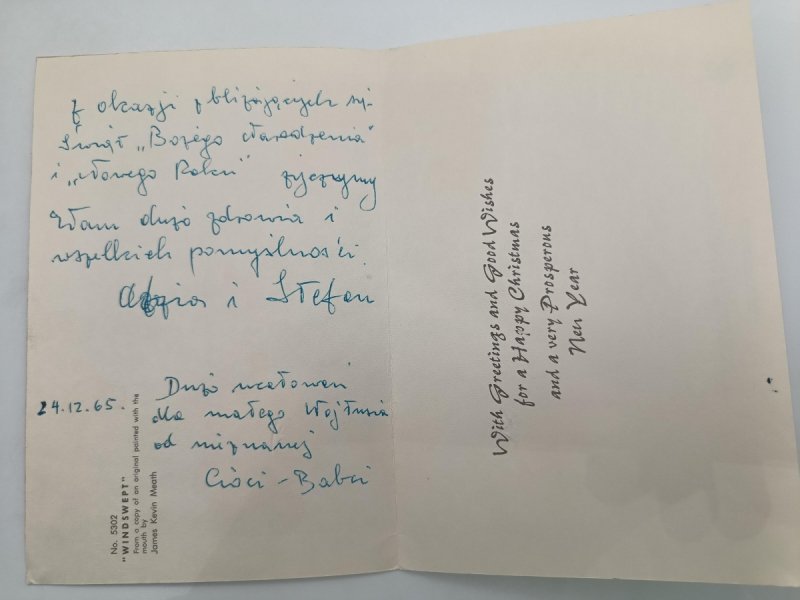 Z okazji zbliżających się
Świąt „Bożego Narodzenia"
i „Nowego Roku" życzymy
Wam dużo zdrowia i
wszelkich pomyślności.
i Stefan
24.12.65.
Dużo ucałowań
dla małego Wojtusia
od nieznanej
Cioci-Babci
No. 5302
"WINDSWEPT"
From a copy of an original painted with the
mouth by
James Kevin Meath
With Greetings and Good Wishes
for a Happy Christmas
and a very Prosperous
New Year